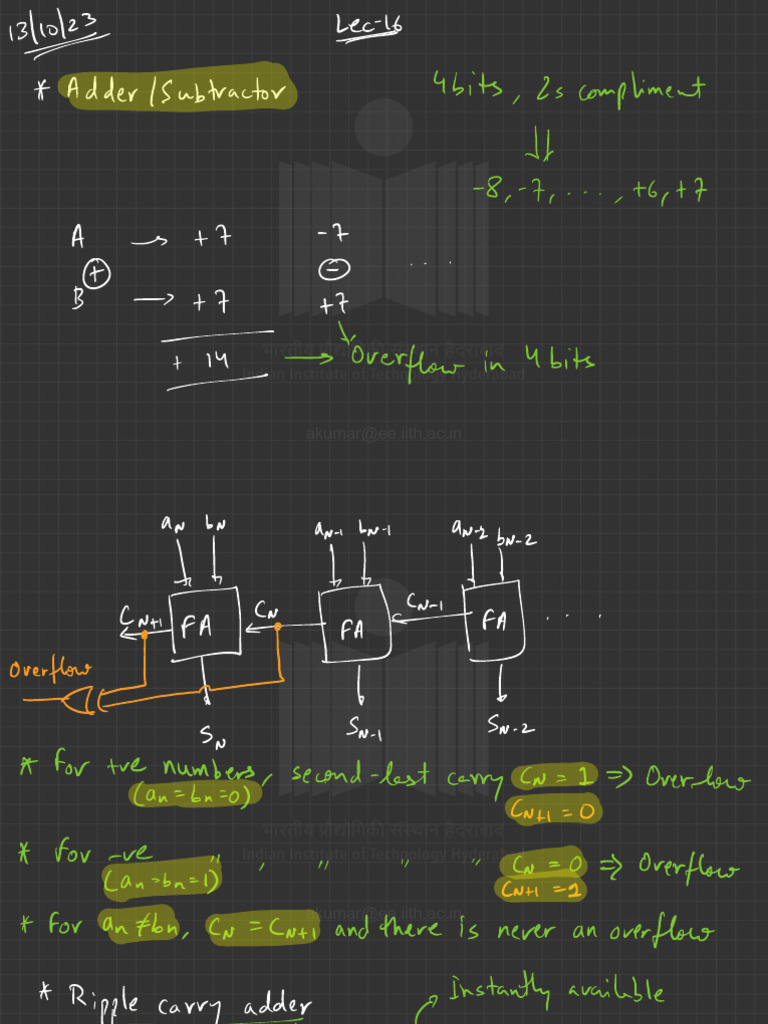 13/10/23
Lec-16
* Adder/Subtractor
4 bits, 2s compliment
⇓
-8, -7, ...., +6, +7
A → +7 -7
⊕ ⊖ ....
B → +7 +7
+ 14 → Overflow in 4 bits
भारतीय प्रौद्योगिकी संस्थान हैदराबाद
Indian Institute of Technology Hyderabad
akumar@ee.iith.ac.in
aN bN aN-1 bN-1 aN-2 bN-2
CN+1 FA CN FA CN-1 FA ....
Overflow
SN SN-1 SN-2
* For +ve numbers, second-last carry CN = 1 ⇒ Overlow
(an = bn = 0) CN+1 = 0
भारतीय प्रौद्योगिकी संस्थान हैदराबाद
Indian Institute of Technology Hyderabad
* For -ve " , " " " CN = 0 ⇒ Overflow
(an = bn = 1) CN+1 = 1
akumar@ee.iith.ac.in
* For an ≠ bn, CN = CN+1 and there is never an overflow
* Ripple carry adder
Instantly available